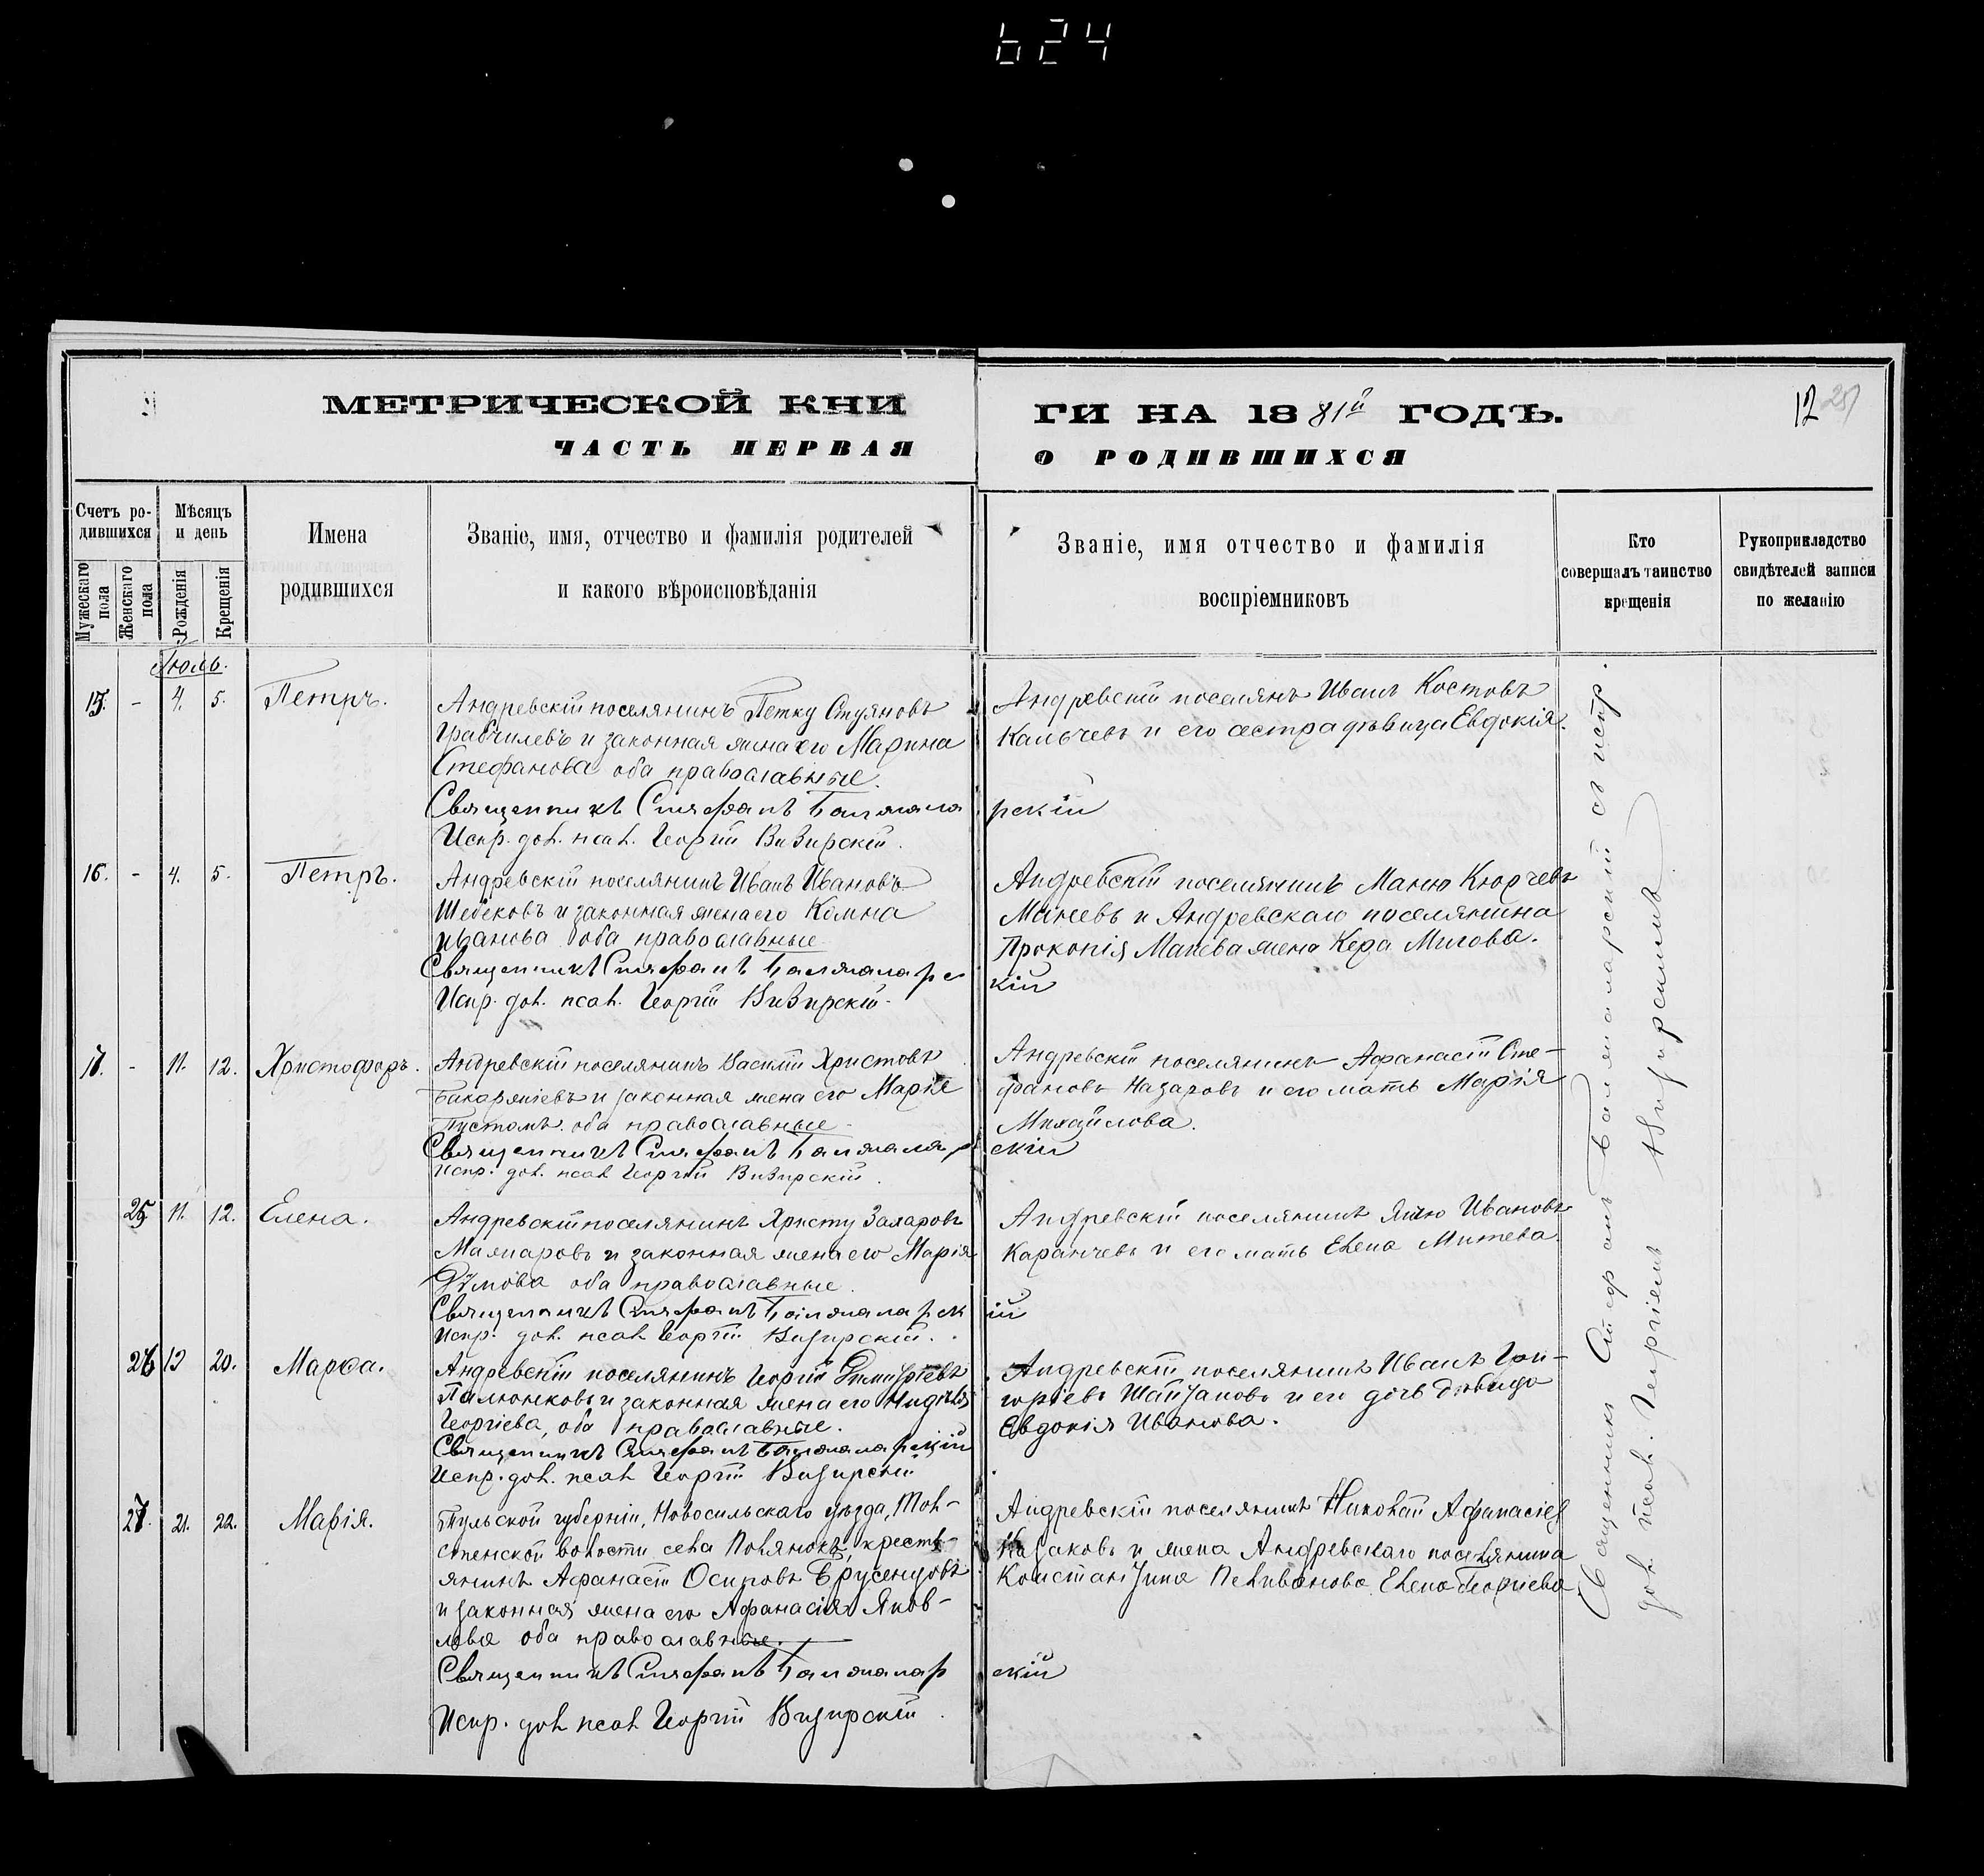 624
МЕТРИЧЕСКОЙ КНИ
ЧАСТЬ ПЕРВАЯ
ГИ НА 1881й ГОДЪ.
О РОДИВШИХСЯ
12
Счетъ ро-
дившихся
Мужескаго
пола
Женскаго
пола
Мѣсяцъ
и день
Рожденія
Крещенія
Имена
родившихся
Званіе, имя, отчество и фамилія родителей
и какого вѣроисповѣданія
Званіе, имя отчество и фамилія
воспріемниковъ
Кто
совершалъ таинство
крещенія
Рукоприкладство
свидѣтелей записи
по желанію
Іюль.
15. - 4. 5. Петръ.
Андревскій поселянинъ Петку Стуяновъ
и законная жена его Марина
Стефанова оба православные.
Священникъ Стефанъ Балжала
Испр. дол. псал. Георгій Визирскій.
Андревскій поселянъ Иванъ Костовъ
Кальчевъ и его сестра дѣвица Евдокія.
рскій
16. - 4. 5. Петръ.
Андревскій поселянинъ Иванъ Ивановъ
Шебековъ и законная жена его Комна
Иванова оба православные
Священникъ Стефанъ Балжаларс
Испр. дол. псал. Георгій Визирскій.
Андревскій поселянинъ Маню Кюрчевъ
Манževъ и Андревскаго поселянина
Прокопія Манева жена Кера Милова.
кій
17. - 11. 12. Христофоръ.
Андревскій поселянинъ Василій Христовъ
и законная жена его Марія
оба православные
Священникъ Стефанъ Балжалар
Испр. дол. псал Георгій Визирскій.
Андревскій поселянинъ Афанасій Сте-
фановъ Назаровъ и его мать Марія
Михайлова.
скій
25 11. 12. Елена.
Андревскій поселянинъ Христу Захаровъ
и законная жена его Марія
Димова оба православные.
Священникъ Стефанъ Балжаларск
Испр. дол. псал Георгій Визирскій.
Андревскій поселянинъ Яню Ивановъ
Каранчевъ и его мать Елена Митева.
ій
26 19 20. Марѳа.
Андревскій поселянинъ Георгій Димитріевъ
и законная жена его
Георгіева, оба православные.
Священникъ Стефанъ Балжаларскій
Испр. дол. псал Георгій Визирскій
Андревскій поселянинъ Иванъ Гри-
горіевъ и его дочь дѣвица
Евдокія Иванова.
27. 21. 22. Марія.
Тульской губерніи, Новосильскаго уѣзда, Мох-
села Полянокъ, кресть-
янинъ Афанасій Осиповъ Брусенцовъ
и законная жена его Афанасія Яков-
лева оба православные.
Священникъ Стефанъ Балжалар
Испр. дол псал Георгій Визирскій.
Андревскій поселянинъ Николай Афанасіев
Казаковъ и жена Андревскаго поселянина
Константина Пеливанова Елена Георгіева
скій
Священникъ Стефанъ Балжаларскій съ испр.
дол. псал. Георгіемъ Визирскимъ